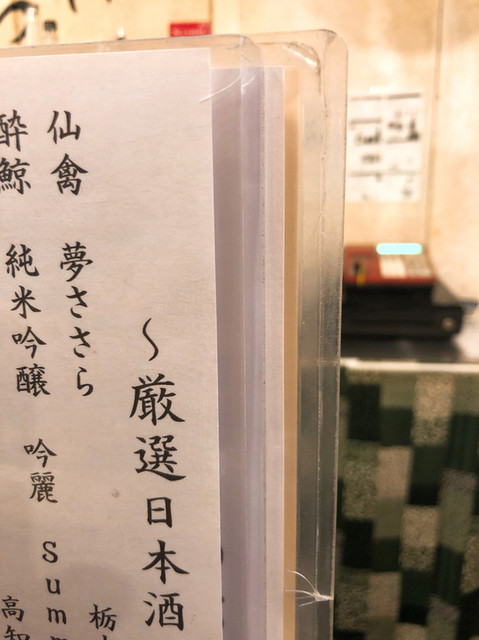 ～厳選日本酒
仙禽 夢ささら 栃
酔鯨 純米吟醸 吟麗 Summ
高知